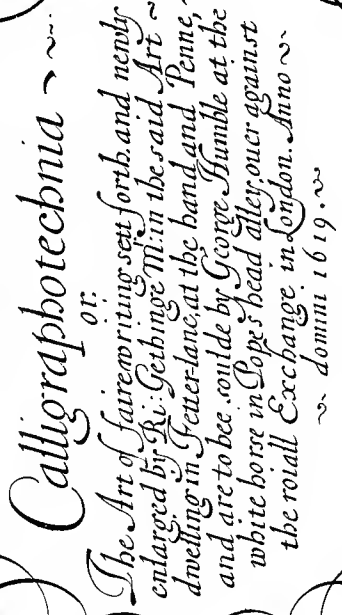 Calligraphotechnia
or.
The Art of faire writing sett forth, and newly
enlarged by Ri: Gethinge Mr: in the said Art
dwelling in Fetter-lane, at the hand and Penne,
and are to bee soulde by George Humble at the
white horse in Popes head alley, ouer against
the roiall Exchange in London. Anno
domini 1619.